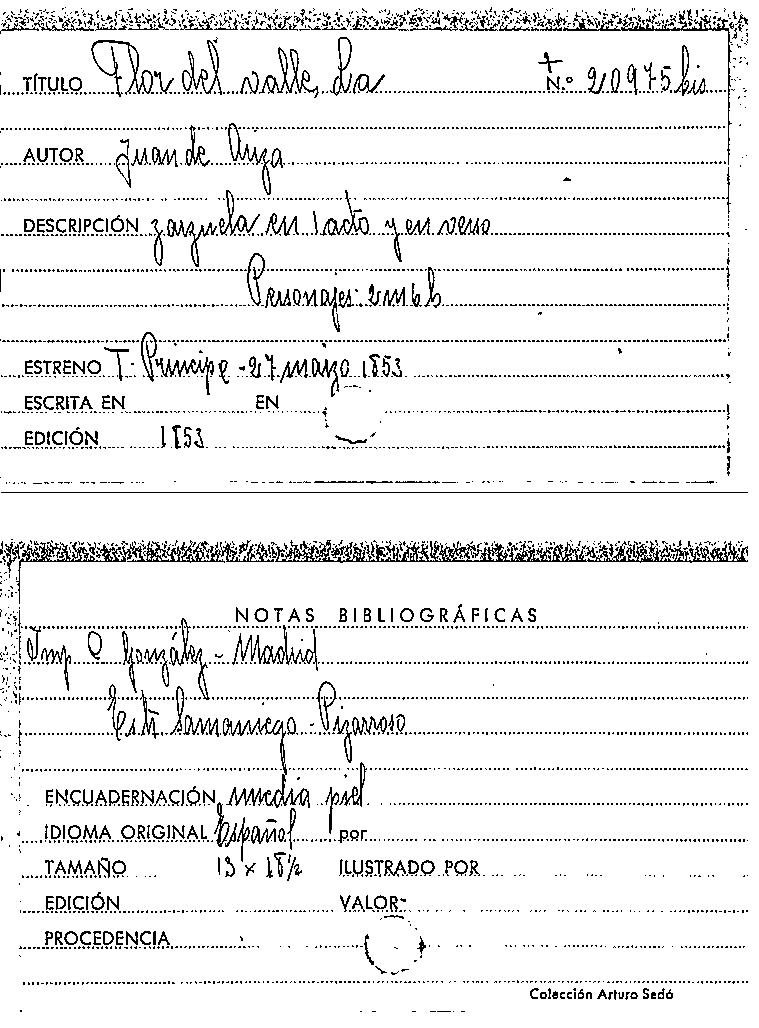 TÍTULO Flor del valle, La N.º 20975 bis
AUTOR Juan de Ariza
DESCRIPCIÓN zarzuela en 1 acto y en verso
Personajes: 2 m 6 h
ESTRENO T. Principe - 27 marzo 1853
ESCRITA EN EN
EDICIÓN 1853
NOTAS BIBLIOGRÁFICAS
Imp C González - Madrid
Estr Samaniego - Pizarroso
ENCUADERNACIÓN media piel
IDIOMA ORIGINAL Español por
TAMAÑO 13 x 18½ ILUSTRADO POR
EDICIÓN VALOR
PROCEDENCIA
Colección Arturo Sedó